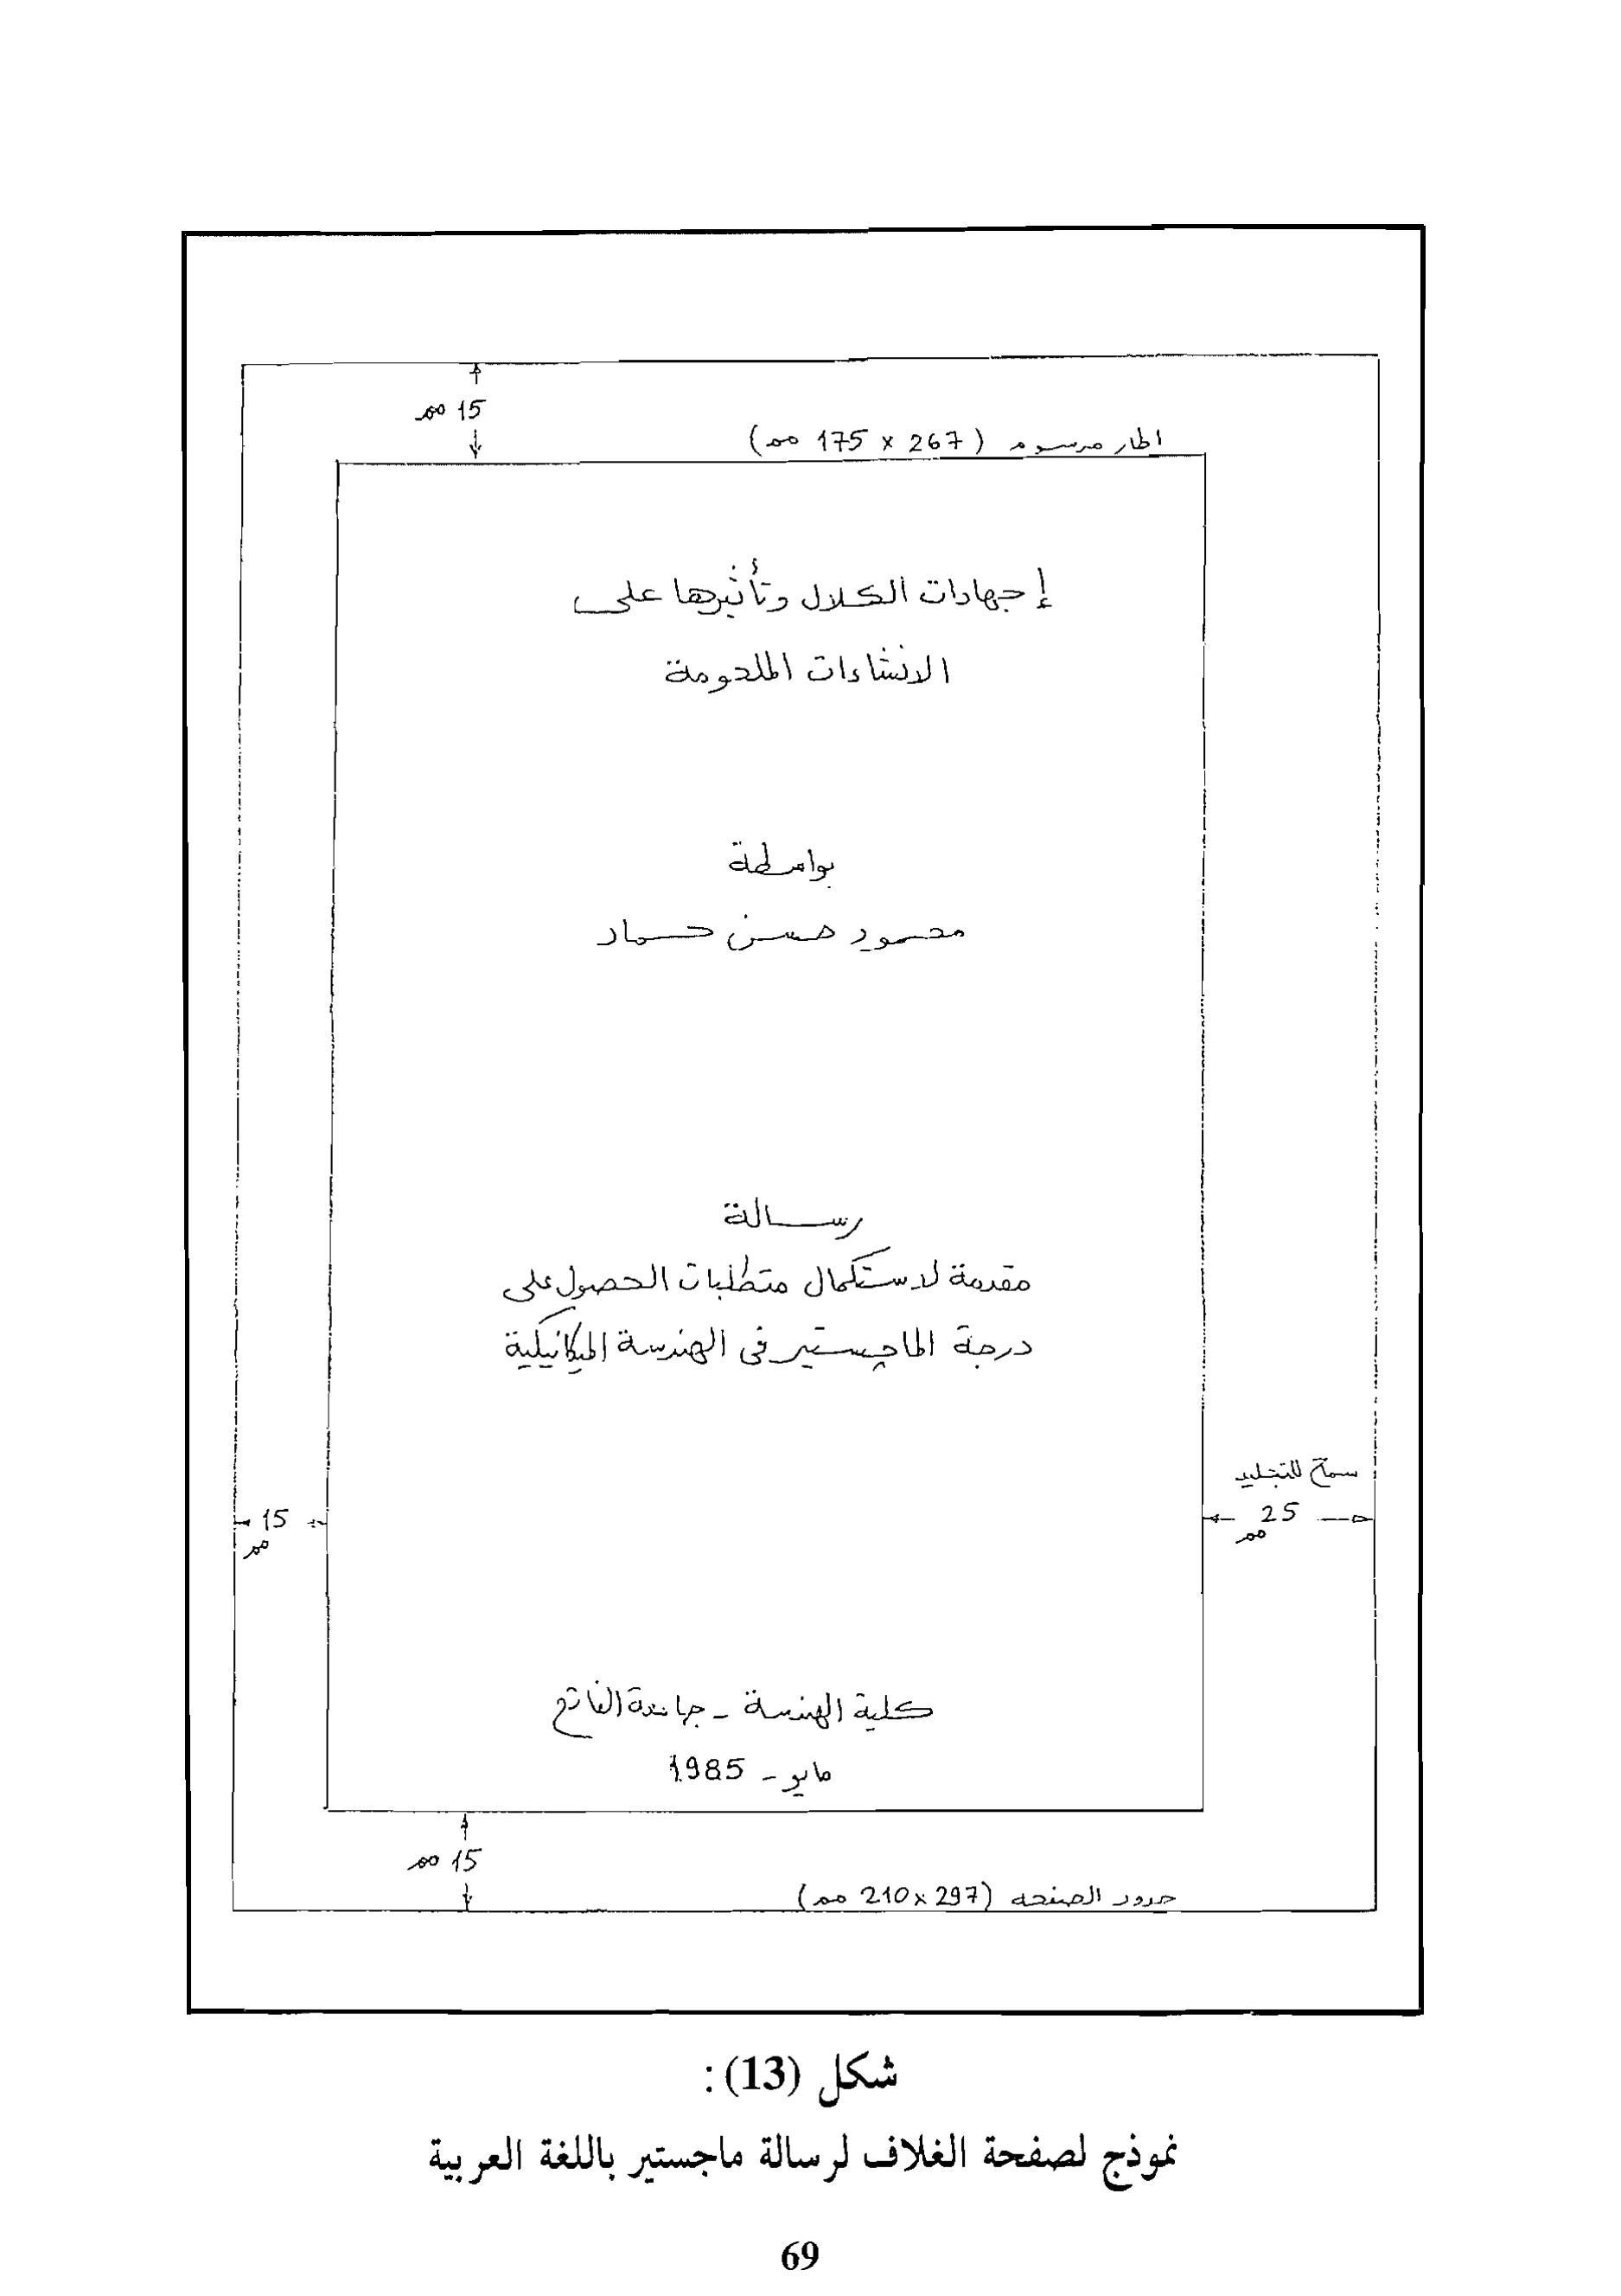 15 مم
اطار مرسوم (267 × 175 مم)
إجهادات الكلال وتأثيرها على
الانشاءات الملحومة
بواسطة
محمود حسن حماد
رسالة
مقدمة لاستكمال متطلبات الحصول على
درجة الماجستير في الهندسة الميكانيكية
سماح للتجليد
25
مم
15
مم
كلية الهندسة - جامعة الفاتح
مايو - 1985
15 مم
حدود الصفحه (297 × 210 مم)
شكل (13) :
نموذج لصفحة الغلاف لرسالة ماجستير باللغة العربية
69